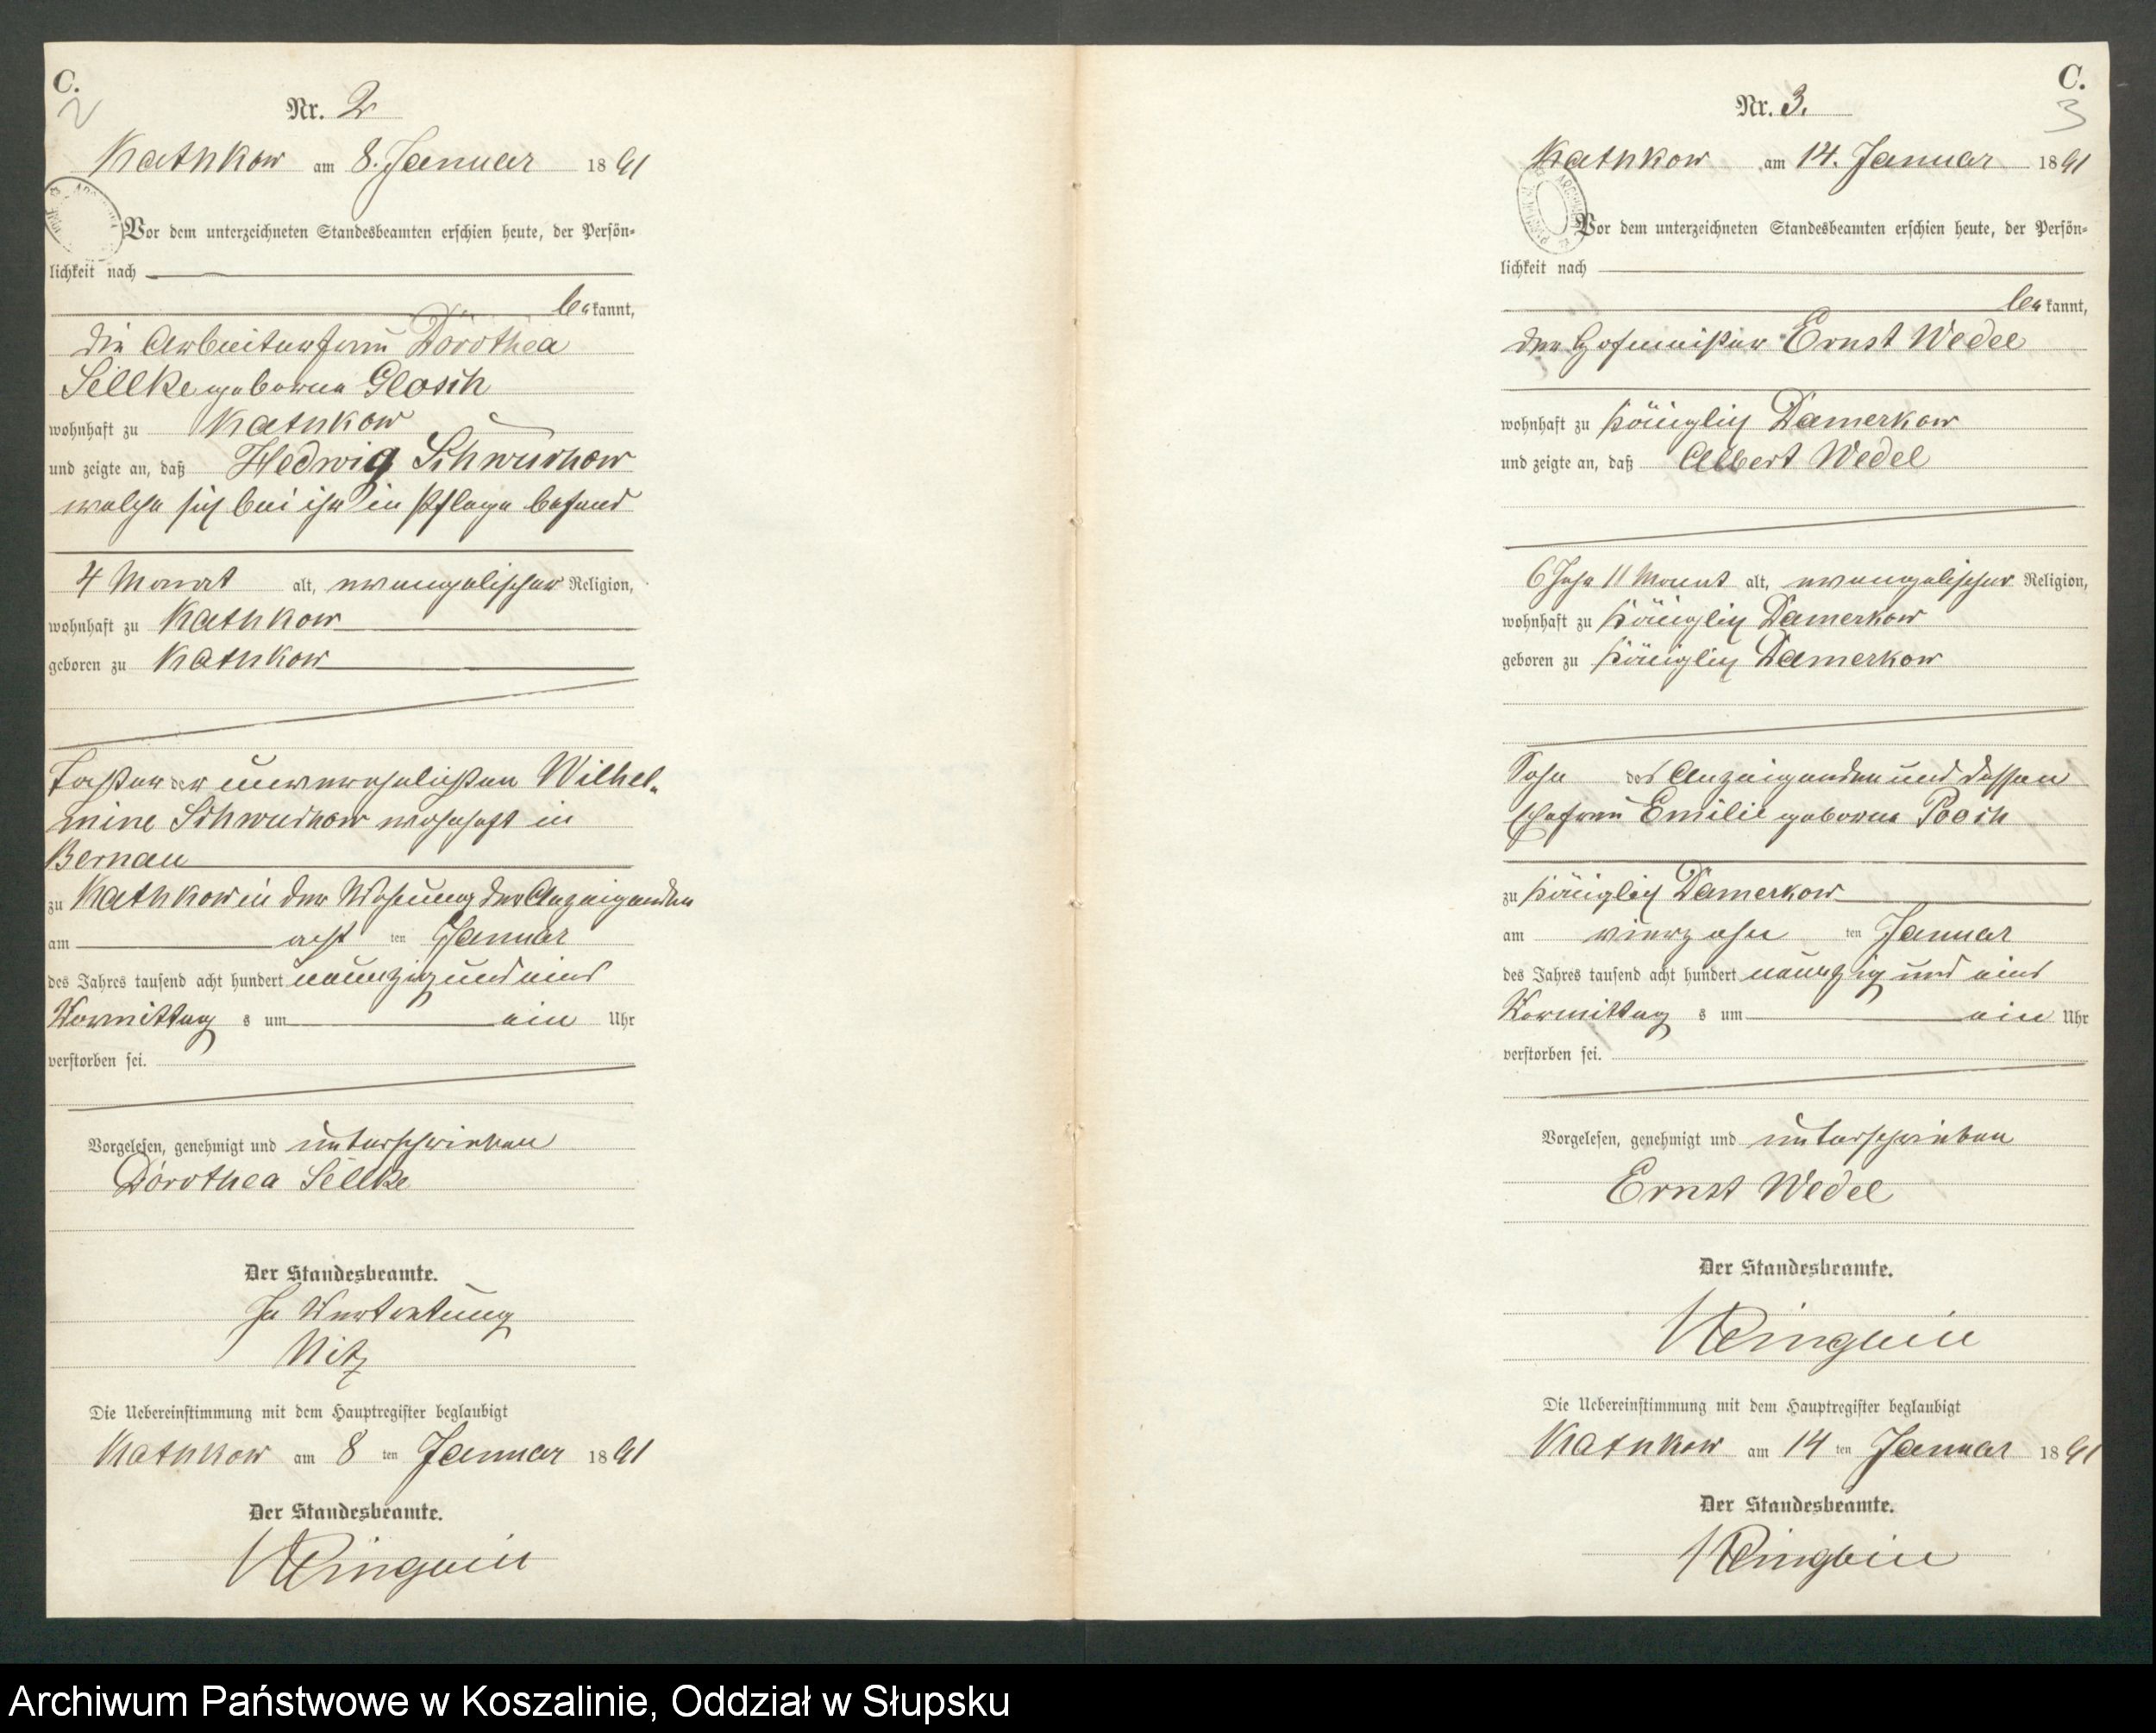 C.
2
Nr. 2
Kathkow am 8. Januar 1891
Vor dem unterzeichneten Standesbeamten erschien heute, der Persön-
lichkeit nach
bekannt,
die Arbeiterfrau Dorothea
Sellke geborne Glosch
wohnhaft zu Kathkow
und zeigte an, daß Hedwig
welche sich bei ihr in Pflege befand
4 Monat alt, evangelischer Religion,
wohnhaft zu Kathkow
geboren zu Kathkow
Tochter der unverehelichten Wilhel-
mine wohnhaft in
Bernau
zu Kathkow in der Wohnung der Anzeigenden
am acht ten Januar
des Jahres tausend acht hundert neunzig und eins
Vormittag s um ein Uhr
verstorben sei.
Vorgelesen, genehmigt und unterschrieben
Dorothea Sellke
Der Standesbeamte.
In Vertretung
Nitz
Die Uebereinstimmung mit dem Hauptregister beglaubigt
Kathkow am 8 ten Januar 1891
Der Standesbeamte.
C.
3
Nr. 3.
Kathkow am 14. Januar 1891
Vor dem unterzeichneten Standesbeamten erschien heute, der Persön-
lichkeit nach
bekannt,
der Hofmeister Ernst Wedel
wohnhaft zu Königlich Damerkow
und zeigte an, daß Albert Wedel
6 Jahr 11 Monat alt, evangelischer Religion,
wohnhaft zu Königlich Damerkow
geboren zu Königlich Damerkow
Sohn des Anzeigenden und dessen
Ehefrau Emilie geborne Poosch
zu Königlich Damerkow
am vierzehn ten Januar
des Jahres tausend acht hundert neunzig und eins
Vormittag s um ein Uhr
verstorben sei.
Vorgelesen, genehmigt und unterschrieben
Ernst Wedel
Der Standesbeamte.
Die Uebereinstimmung mit dem Hauptregister beglaubigt
Kathkow am 14 ten Januar 1891
Der Standesbeamte.
Archiwum Państwowe w Koszalinie, Oddział w Słupsku